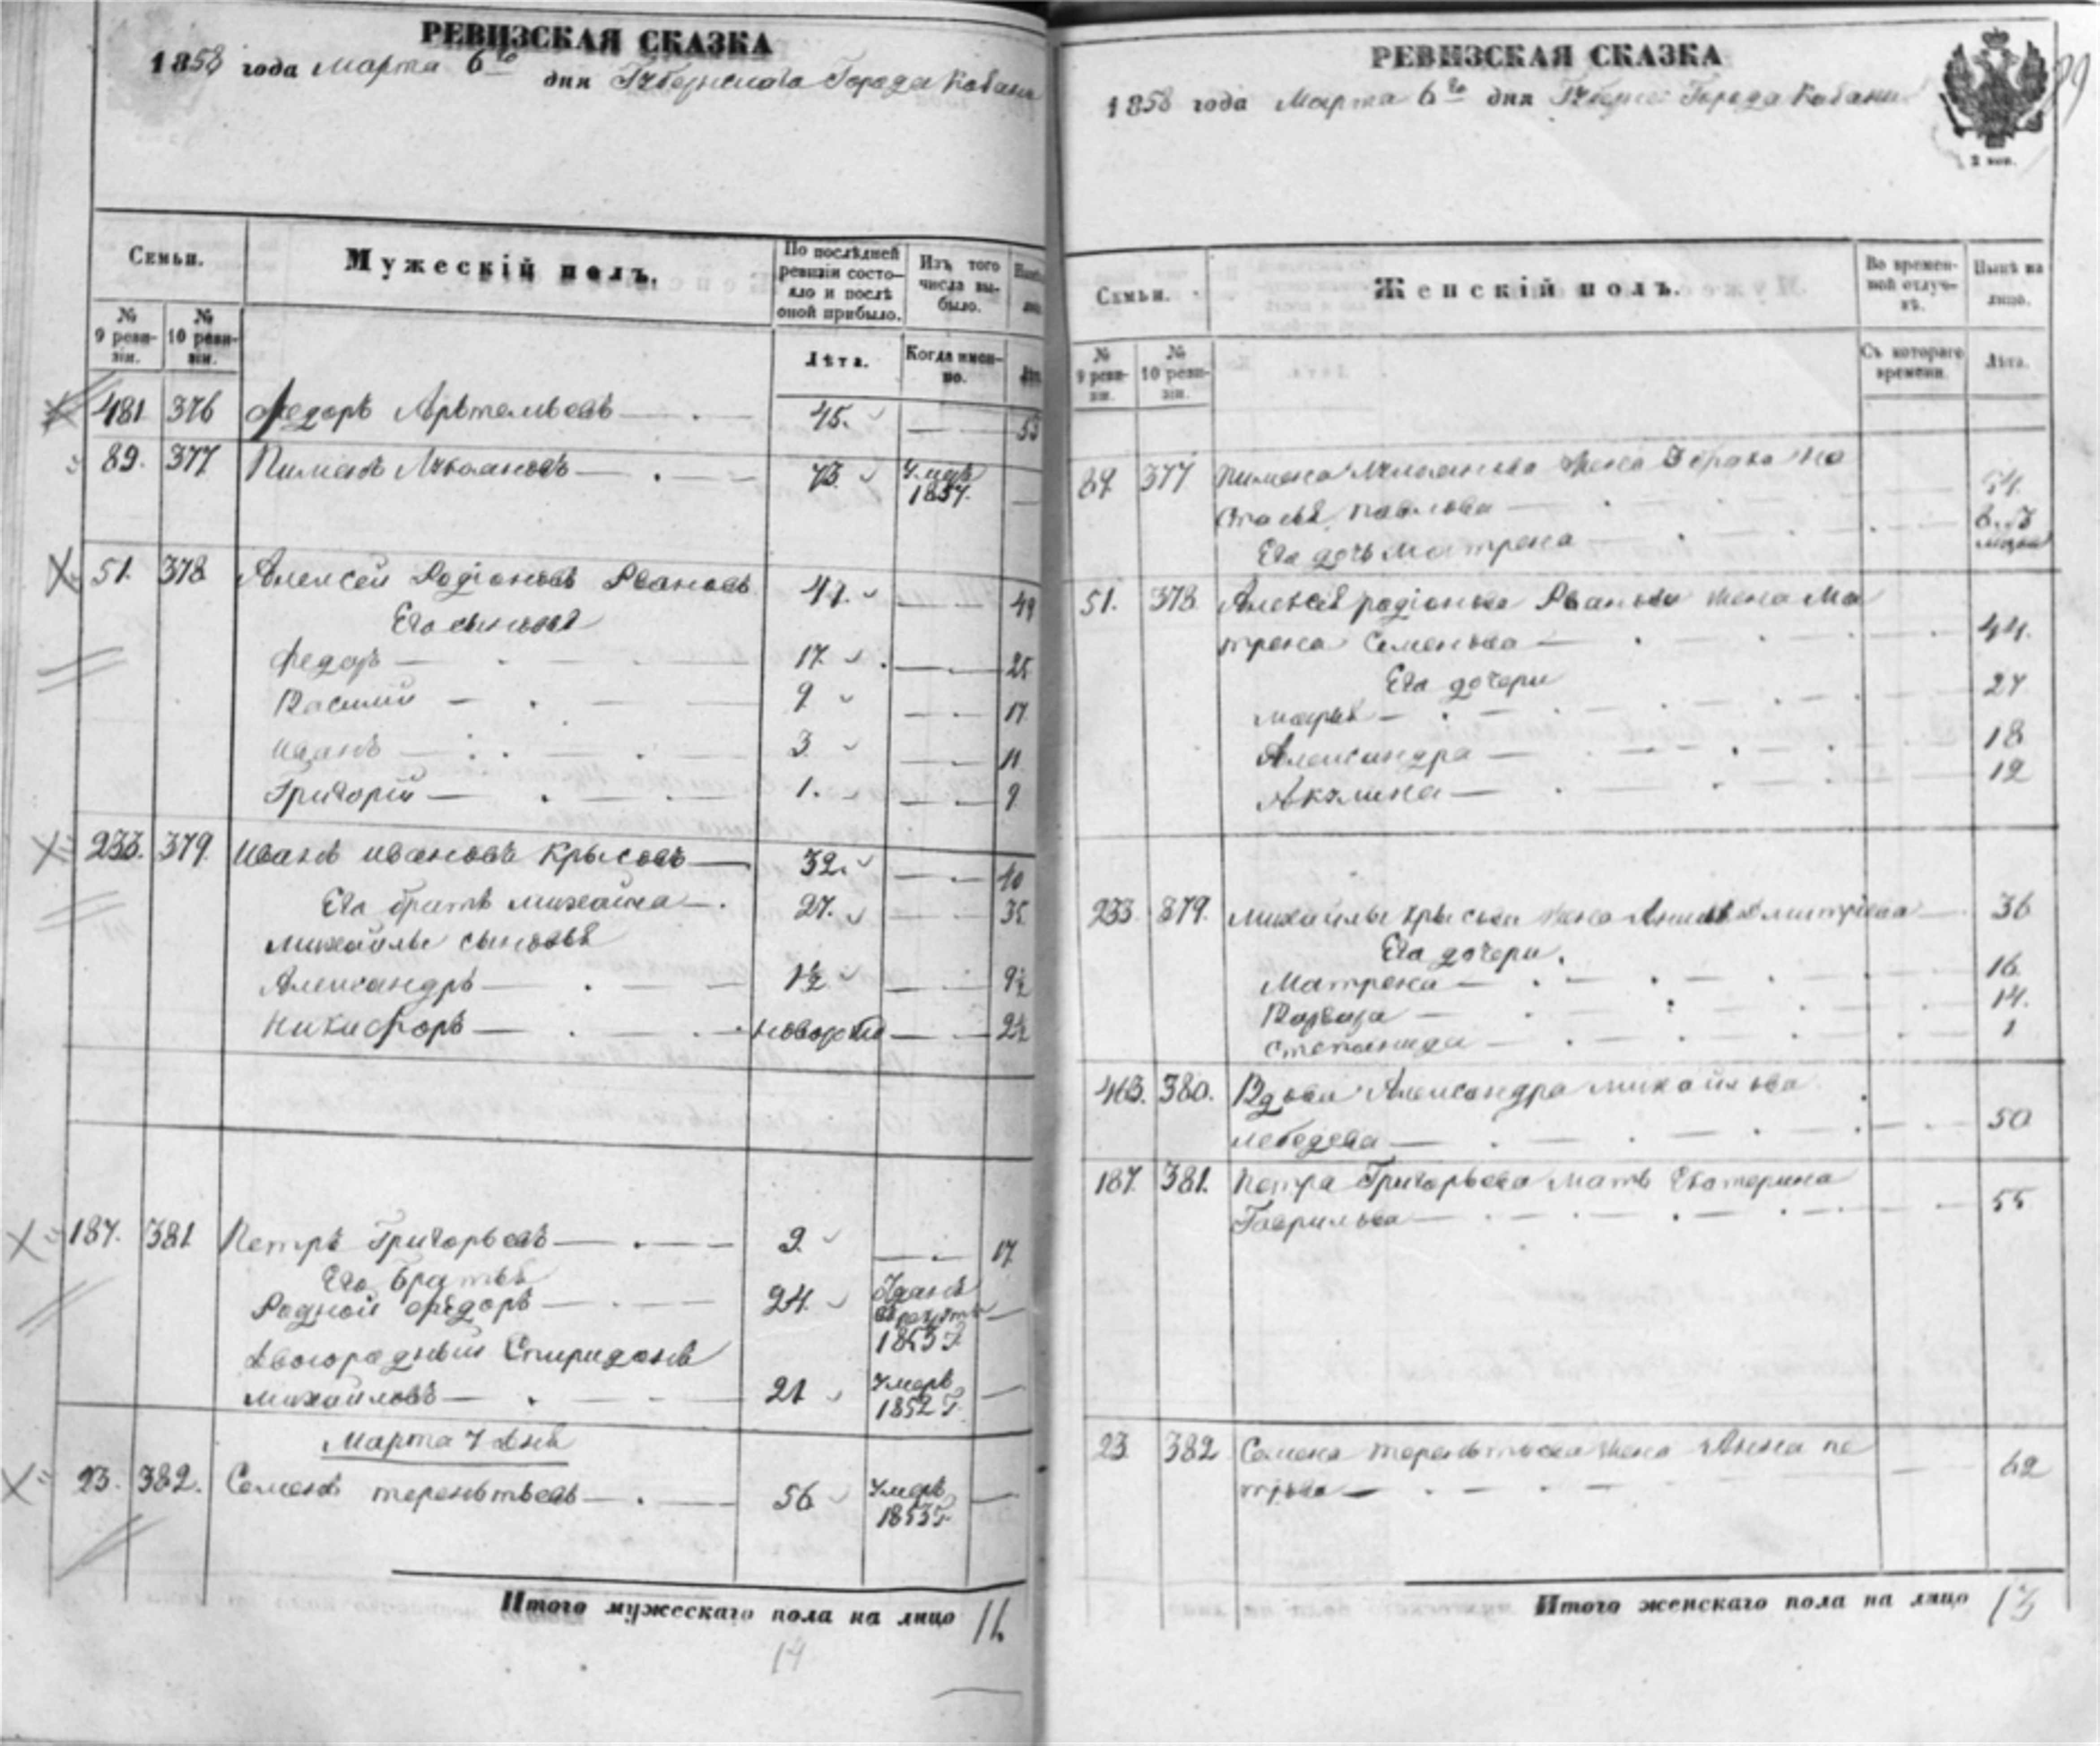 РЕВИЗСКАЯ СКАЗКА
1858 года Марта 6го дня Губернскаго Города Казани
Семьи.
Мужескій полъ.
По послѣдней ревизіи состояло и послѣ оной прибыло.
Изъ того числа выбыло.
№ 9 ревизіи.
№ 10 ревизіи.
Лѣта.
Когда именно.
481 376 Федоръ Артемьевъ 45. 53
89. 377 Пименъ Лукьяновъ 73. Умеръ 1857.
51. 378 Алексей Родіоновъ Ивановъ 41. 49
Его сыновья
Федоръ 17. 25
Василий 9 17
Иванъ 3 11
Григорій 1. 9
233. 379. Иванъ Ивановъ Крысовъ 32. 40
Его братъ Михайла 27. 35
Михайлы сыновья
Александръ 1½ 9½
Никифоръ новорож 2½
187. 381 Петръ Григорьевъ 9. 17
Его братья
Родной Федоръ 24. Зданъ въ рекруты 1853 г.
Двоюродный Спиридонъ
Михайловъ 21 Умеръ 1852 г.
Марта 7 дня
23. 382. Семенъ Терентьевъ 56 Умеръ 1853 г.
Итого мужескаго пола на лицо 11.
14
РЕВИЗСКАЯ СКАЗКА
1858 года Марта 6го дня Губерн: Города Казани
2 коп.
Семьи.
Женскій полъ.
Во временной отлучкѣ.
Нынѣ на лицо.
№ 9 ревизіи.
№ 10 ревизіи.
Съ котораго времени.
Лѣта.
89. 377 Пимена Лукьянова жена 2 брака На
стасья Павлова 54.
Его дочь Матрена
51. 378 Алексея Родіонова Иванова жена Ма
трена Семенова 44.
Его дочери
Марья 27
Александра 18
Акулина 12
233. 379. Михайлы Крысова жена Анисья Дмитріева 36
Его дочери.
Матрена 16
Варвара 14.
Степанида 1
463. 380. Вдова Александра Михайлова
Лебедева 50
187. 381. Петра Григорьева мать Екатерина
Гаврилова 55
23. 382 Семена Терентьева жена Анна Пе
трова 62
Итого женскаго пола на лицо 13